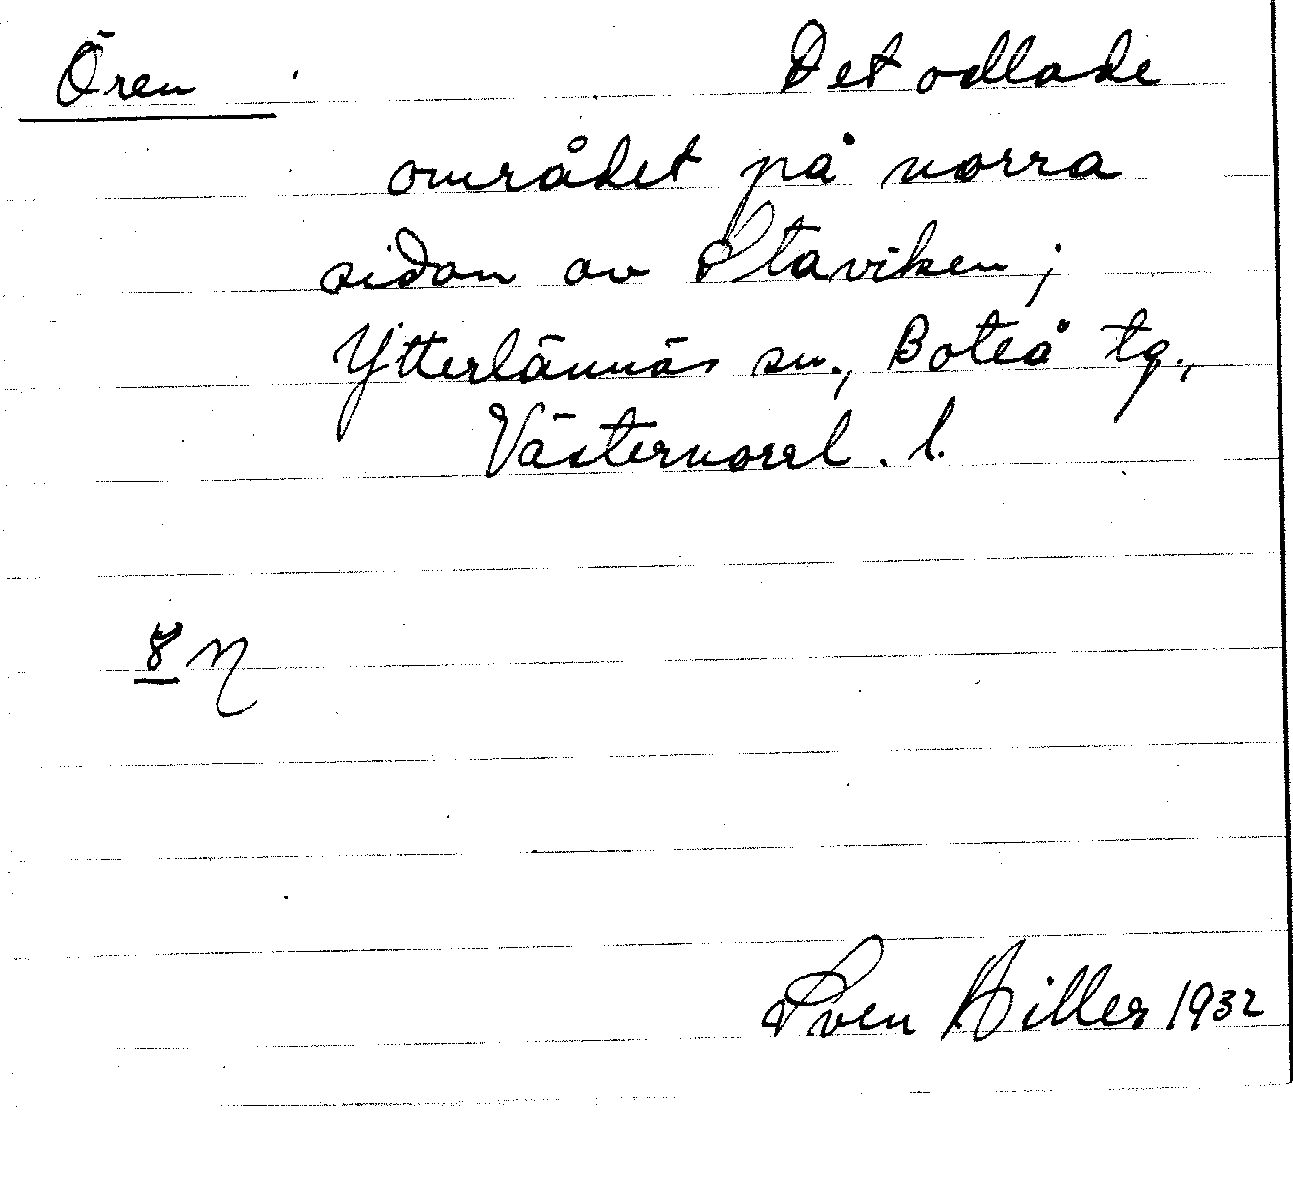 Ören Det odlade
området på norra
sidan av Staviken;
Ytterlännäs sn., Boteå tg.,
Västernorrl. l.
8 η
Sven Hiller 1932